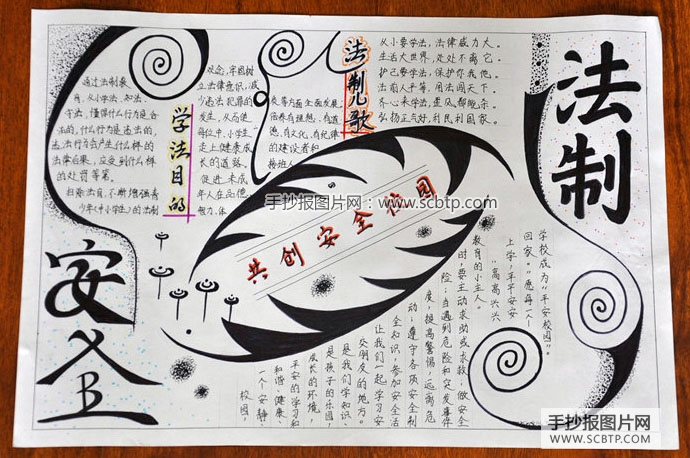 法制
安全
学法目的
通过法制教
育,从小学法、知法、
守法,懂得什么行为是合
法的,什么行为是违法的,
违法行为会产生什么样的
法律后果,应受到什么样
的处罚等等。
法育,不断增强青
少年(中小学生)的法制
观念,牢固树
立法律意识,减
少违法犯罪的
发生,从而使
每位中、小学生
走上健康成
长的道路。
促进未成
年人在品德、
智力、体
质等方面全面发展,
培养有理想、有道
德、有文化、有纪律
的建设者和
接班人
法制儿歌
从小要学法,法律威力大。
生活大世界,处处不离它。
护己要学法,保护你我他。
法前人平等,用法闯天下。
齐心来学法,歪风都能杀。
弘扬正气好,利民利国家。
共创安全校园
手抄报图片网 www.scbtp.com
校园,
一个安静、
平安的学习和
和谐、健康、
成长的环境,
是孩子的乐园,
是我们学知识、
交朋友的地方。
让我们一起学习安
全知识,参加安全活
动,遵守各项安全制
度,提高警惕,远离危
险;当遇到危险和突发事件
时,要主动求助或求救,做安全
教育的小主人。
"高高兴兴
上学,平平安安
回家。"愿每一个
学校成为"平安校园"。
手抄报图片网
WWW.SCBTP.COM